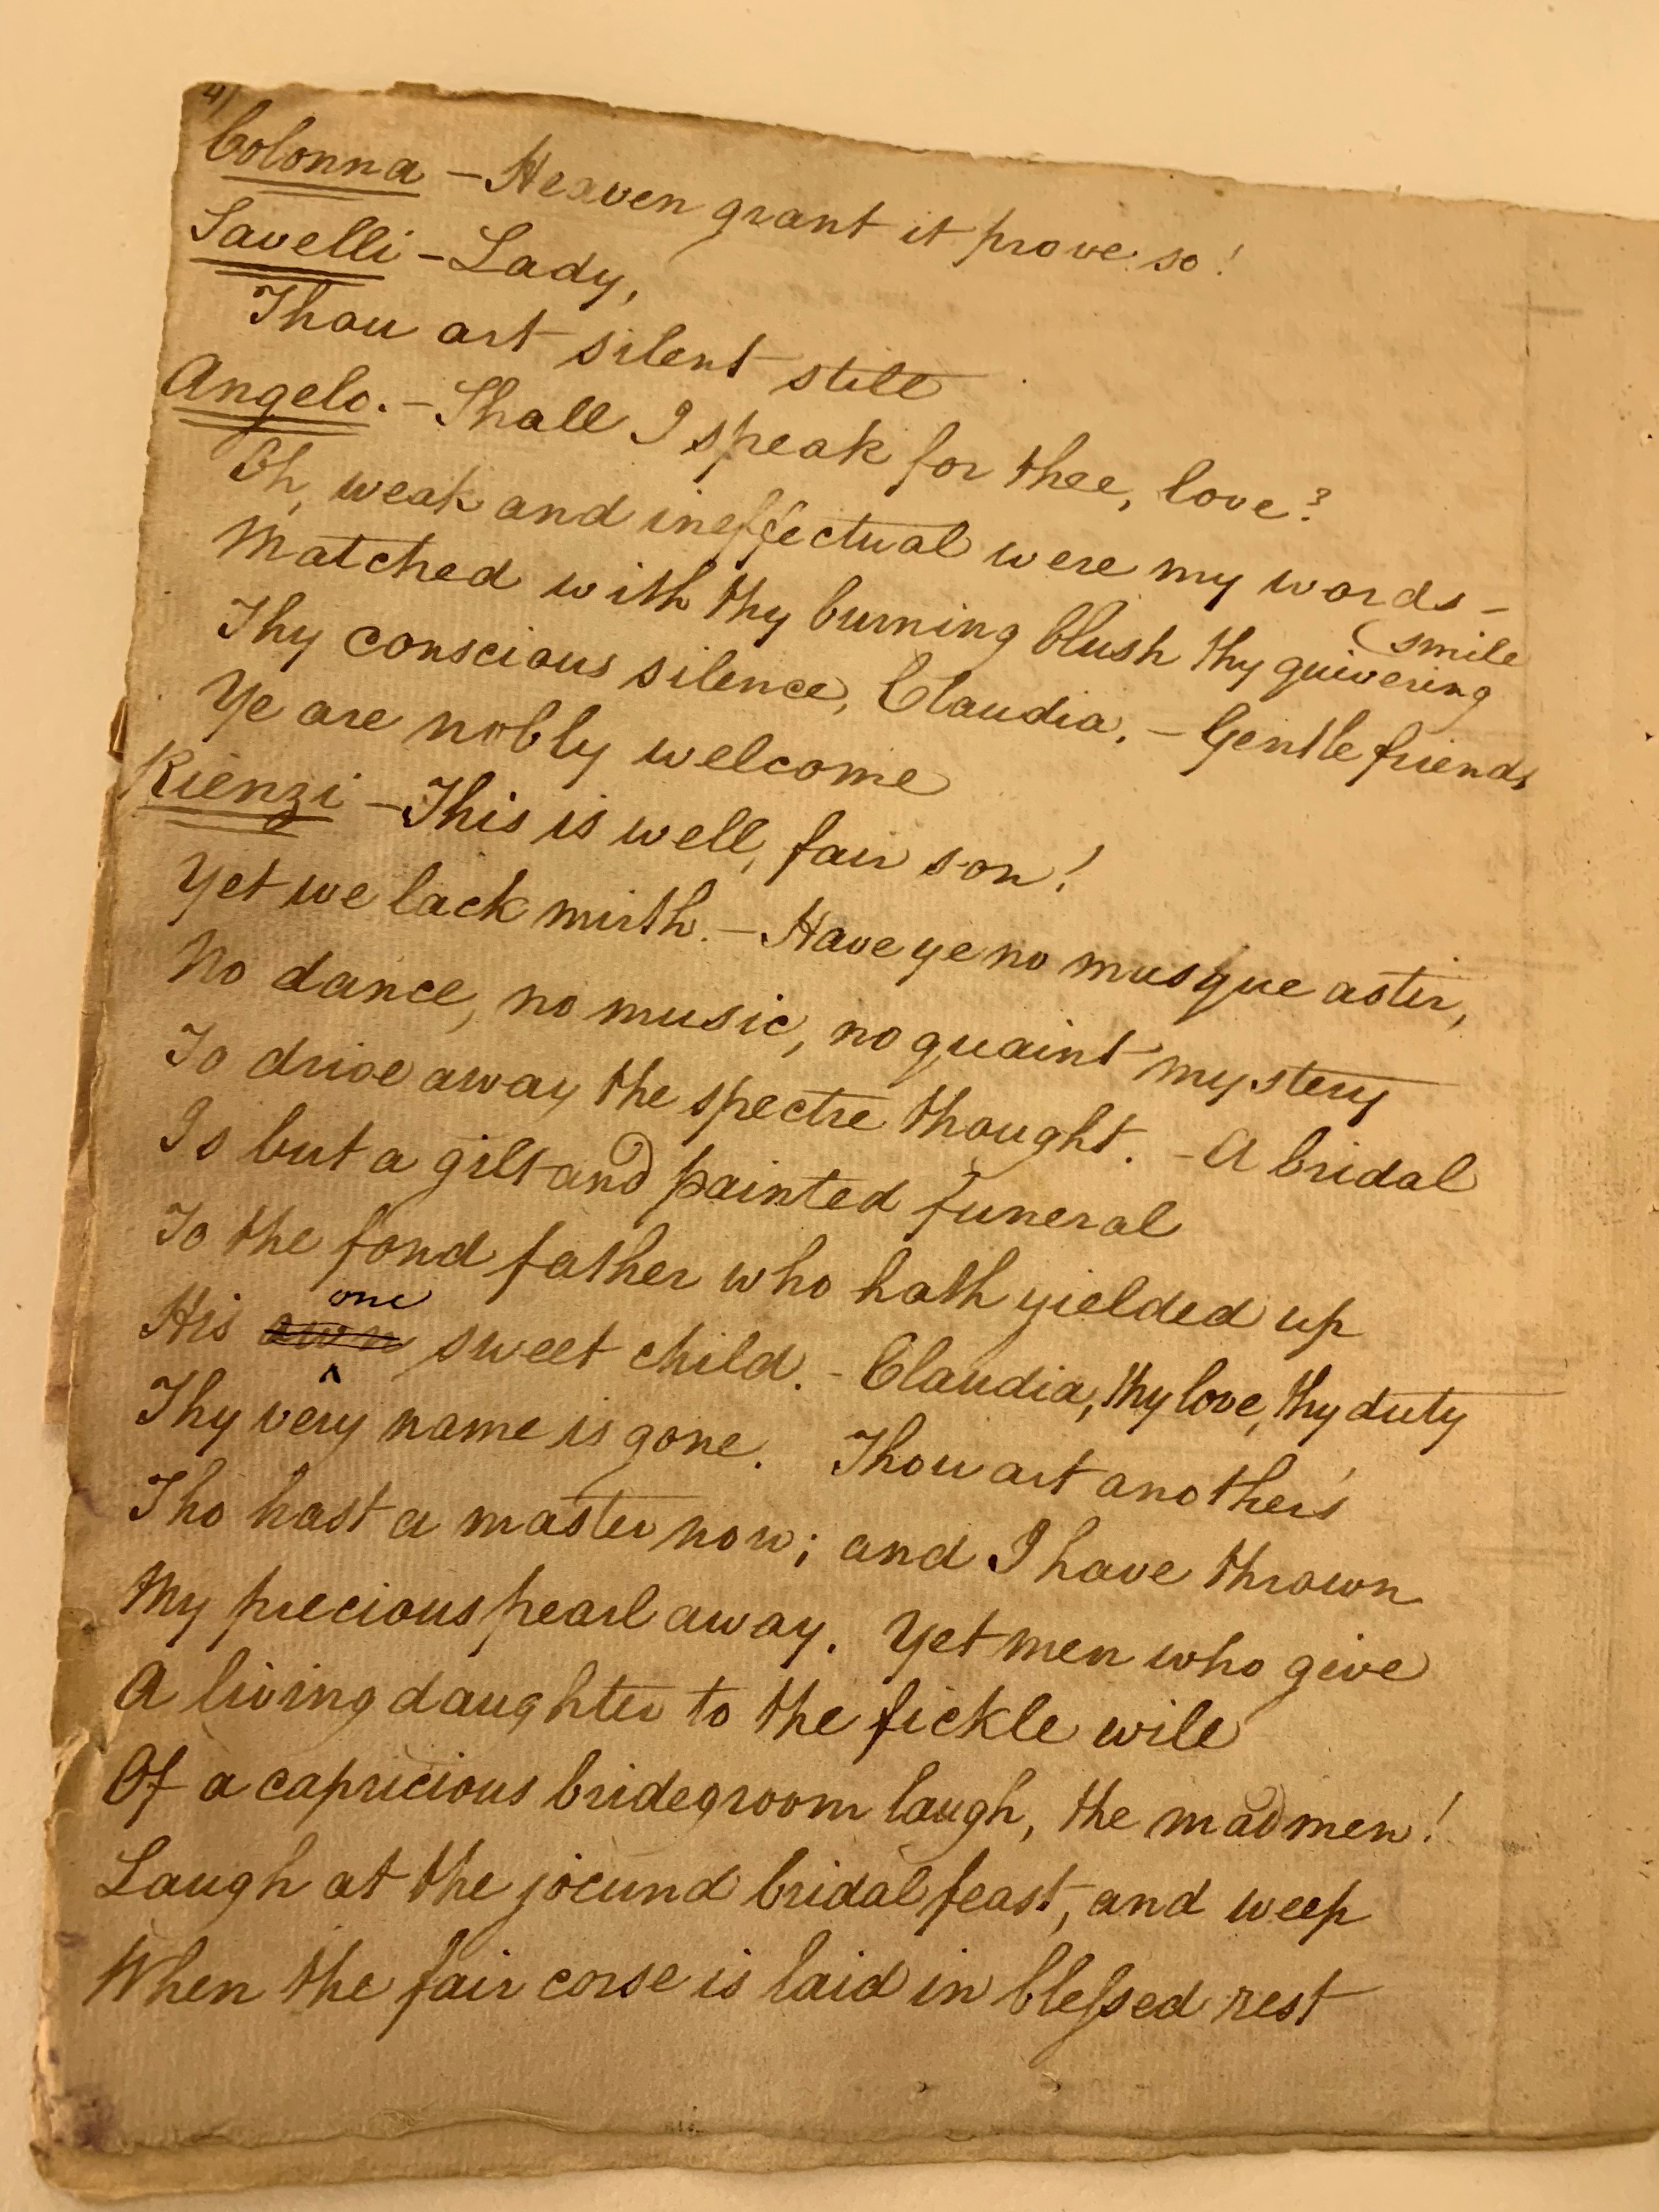 4/
Colonna – Heaven grant it prove so!
Savelli – Lady,
Thou art silent still
Angelo. – Shall I speak for thee, love?
Oh, weak and ineffectual were my words –
Matched with thy burning blush thy quivering (smile
Thy conscious silence, Claudia. – Gentle friends,
Ye are nobly welcome
Rienzi – This is well, fair son!
Yet we lack mirth. – Have ye no musque astir,
No dance, no music, no quaint mystery
To drive away the spectre thought. – A bridal
Is but a gilt and painted funeral
To the fond father who hath yielded up
His own one sweet child. – Claudia, thy love, thy duty
Thy very name is gone. Thou art another's
Tho hast a master now; and I have thrown
My precious pearl away. Yet men who give
A living daughter to the fickle will
Of a capricious bridegroom laugh, the madmen!
Laugh at the jocund bridal feast, and weep
When the fair corse is laid in blessed rest